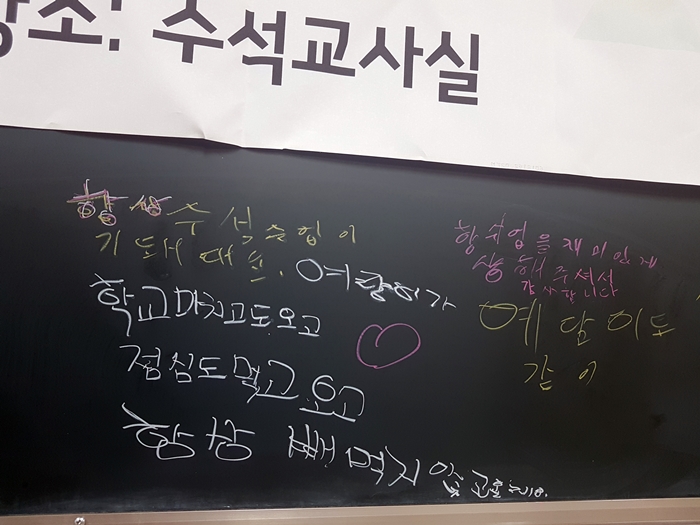 장소: 수석교사실
항상 수석수업이
기도시 때문.
여랑이가
학교마치고도오고
점심도먹고 오고
항상 빼먹지
항 쉬업을 재미있게
상 해주셔서
감사합니다
예담이도
같이